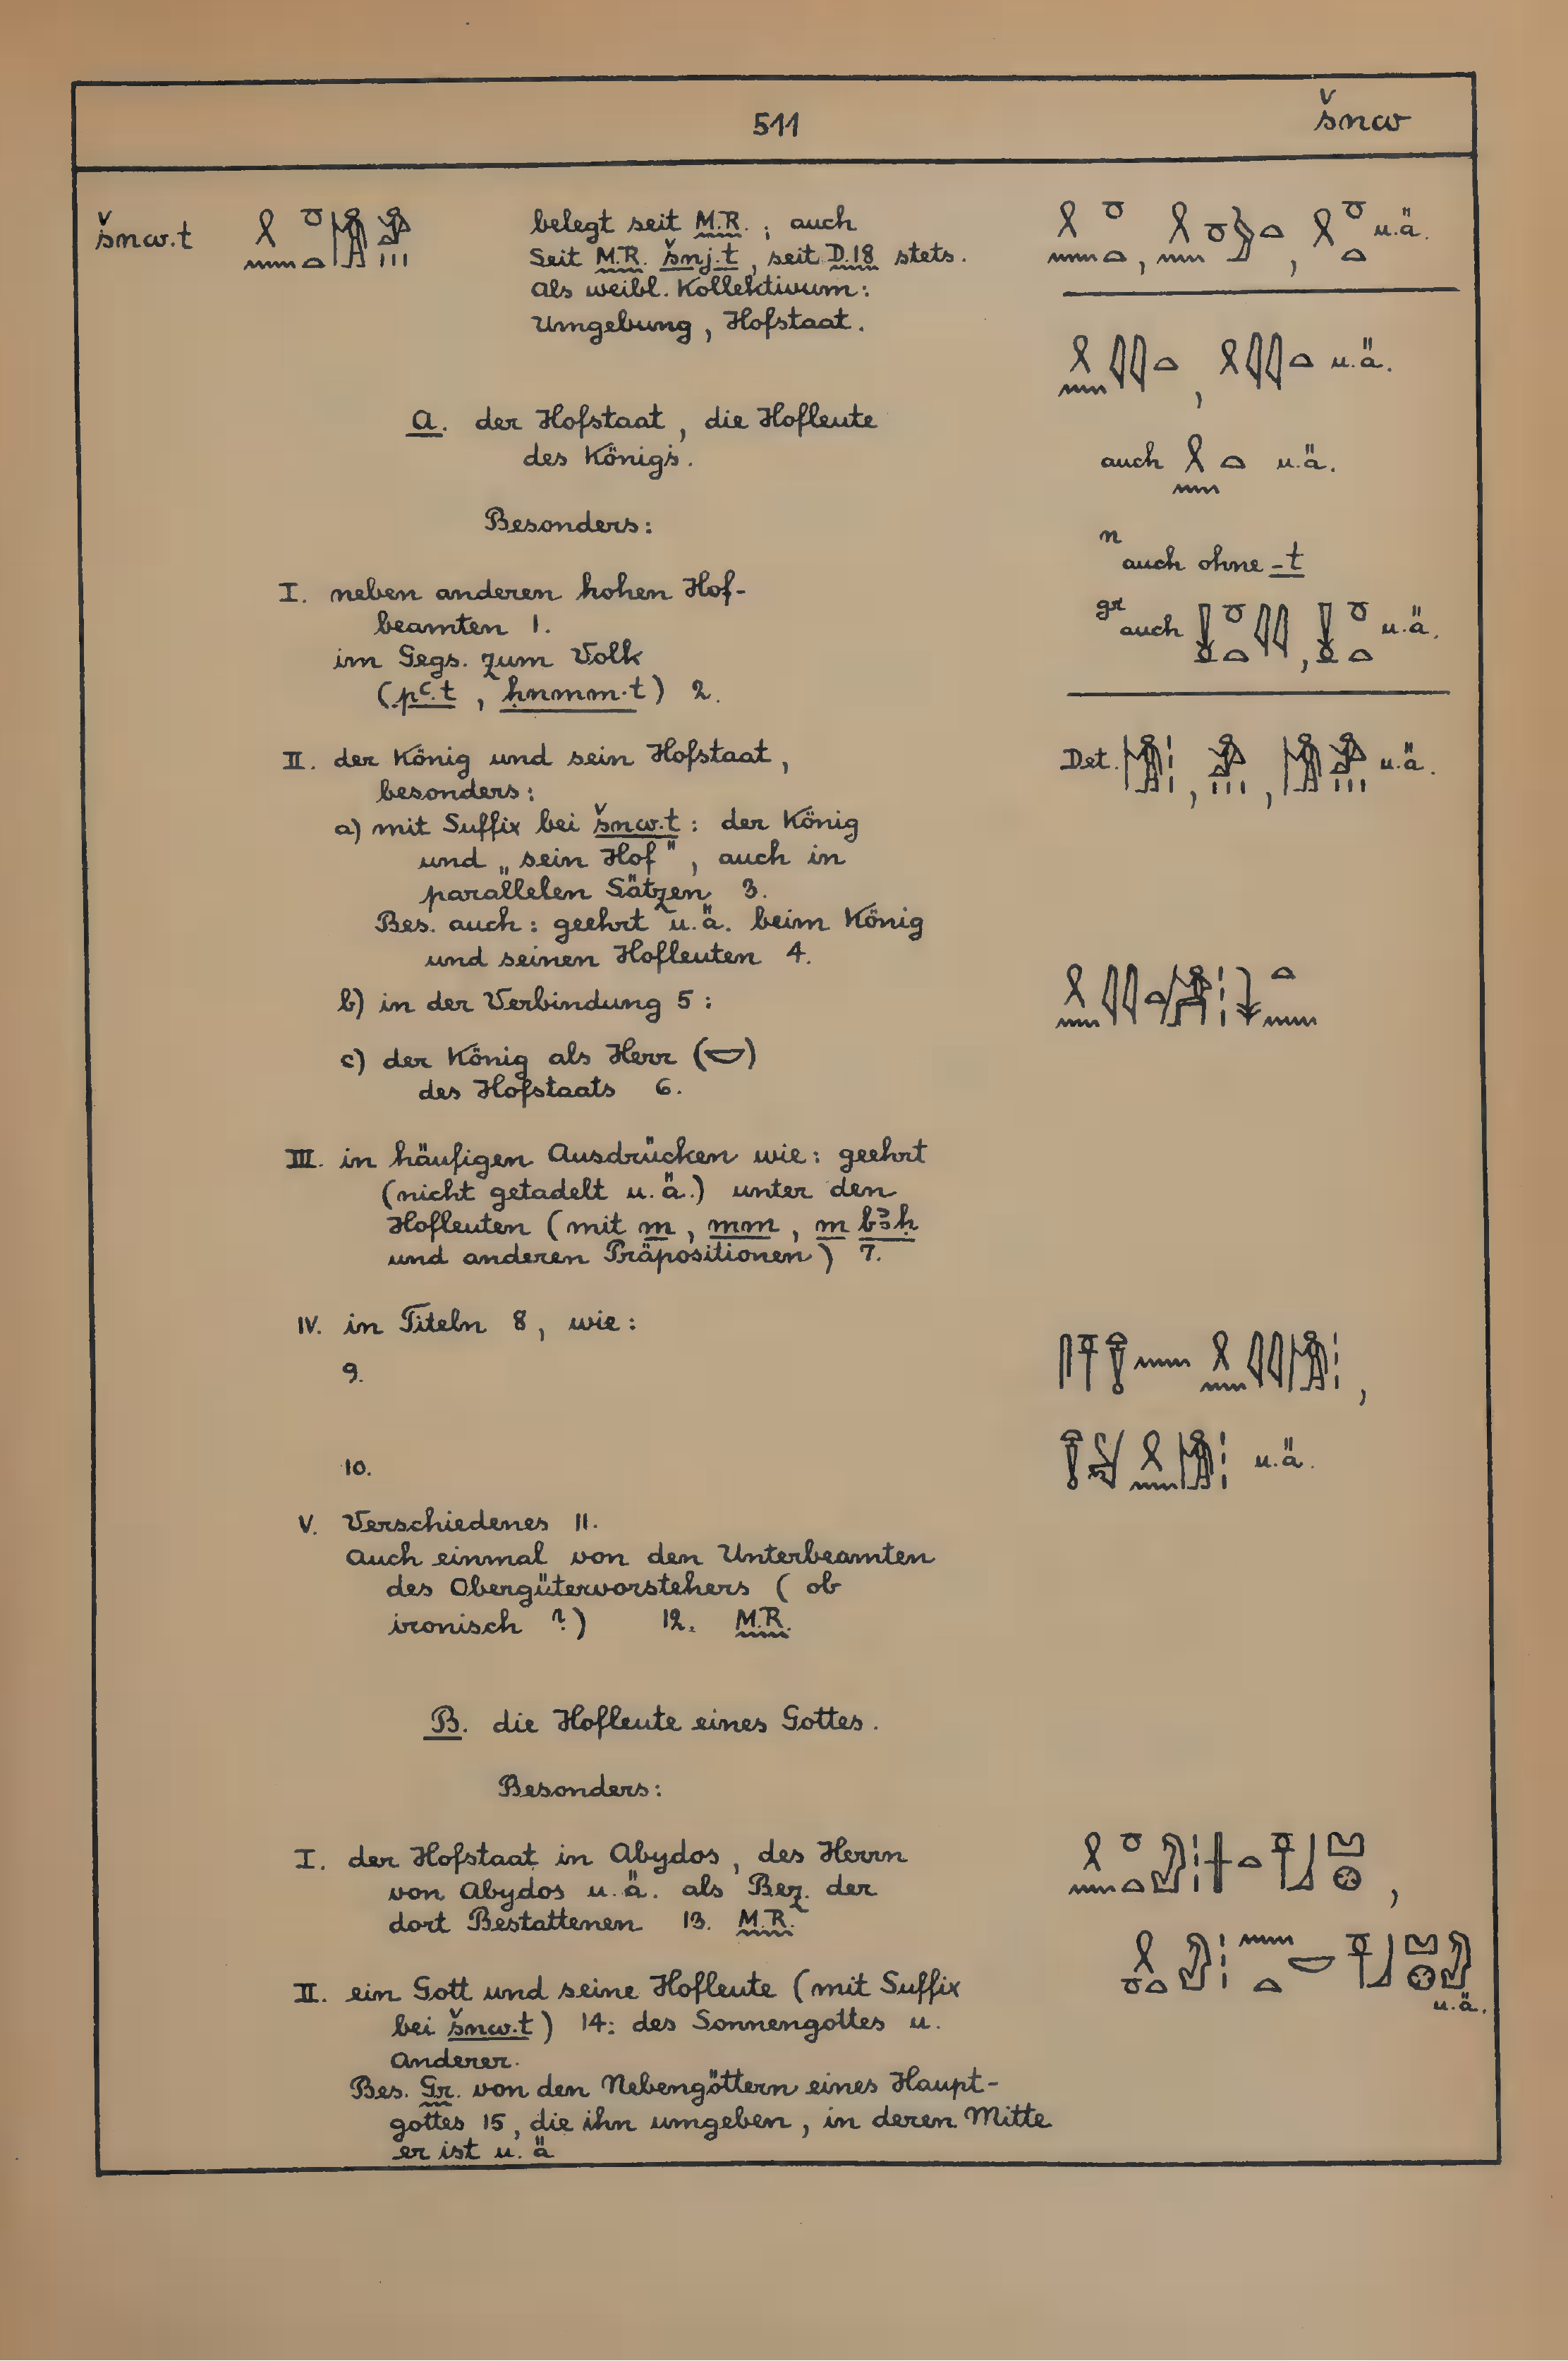 511
šnw
šnw.t
belegt seit M.R. ; auch
Seit M.R. šnj.t , seit D.18 stets.
als weibl. Kollektivum:
Umgebung , Hofstaat.
u.ä.
u.ä.
A. der Hofstaat , die Hofleute
des Königs.
auch u.ä.
Besonders:
n auch ohne -t
I. neben anderen hohen Hof-
beamten 1.
gr auch u.ä.
im Gegs. zum Volk
(pꜥ.t , ḥnmm.t) 2.
II. der König und sein Hofstaat ,
besonders:
Det. u.ä.
a) mit Suffix bei šnw.t : der König
und „sein Hof" , auch in
parallelen Sätzen 3.
Bes. auch : geehrt u.ä. beim König
und seinen Hofleuten 4.
b) in der Verbindung 5 :
c) der König als Herr (𓎟)
des Hofstaats 6.
III. in häufigen Ausdrücken wie : geehrt
(nicht getadelt u.ä.) unter den
Hofleuten (mit m , mm , m bꜣḥ
und anderen Präpositionen) 7.
IV. in Titeln 8 , wie :
9.
10.
u.ä.
V. Verschiedenes 11.
Auch einmal von den Unterbeamten
des Obergütervorstehers ( ob
ironisch ?) 12. M.R.
B. die Hofleute eines Gottes .
Besonders:
I. der Hofstaat in Abydos , des Herrn
von Abydos u.ä. als Bez. der
dort Bestattenen 13. M.R.
II. ein Gott und seine Hofleute (mit Suffix
u.ä.
bei šnw.t) 14: des Sonnengottes u.
Anderer.
Bes. Gr. von den Nebengöttern eines Haupt-
gottes 15 , die ihn umgeben , in deren Mitte
er ist u. ä